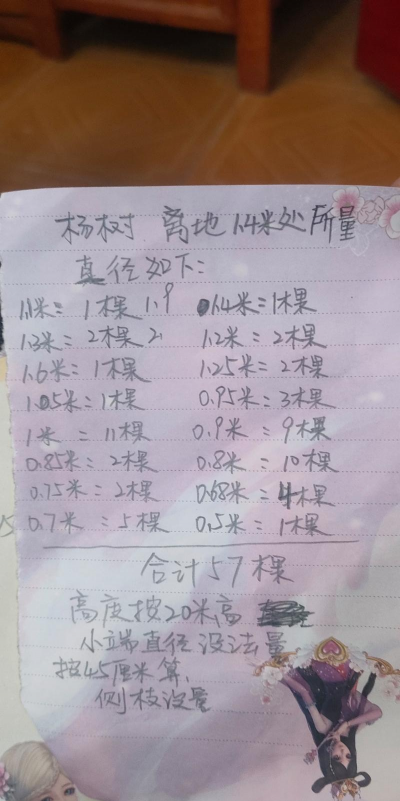 杨树 离地1.4米处所量
真径如下:
1.1米= 1棵 1.9 1.4米=1棵
1.3米= 2棵 2. 1.2米= 2棵
1.6米= 1棵 1.25米= 2棵
1.05米=1棵 0.95米= 3棵
1米 = 11棵 0.9米 = 9棵
0.85米= 2棵 0.8米= 10棵
0.75米= 2棵 0.68米= 4棵
0.7米 = 5棵 0.5米= 1棵
合计57棵
高度按20米高
小端直径没法量
按45厘米算.
侧枝没量